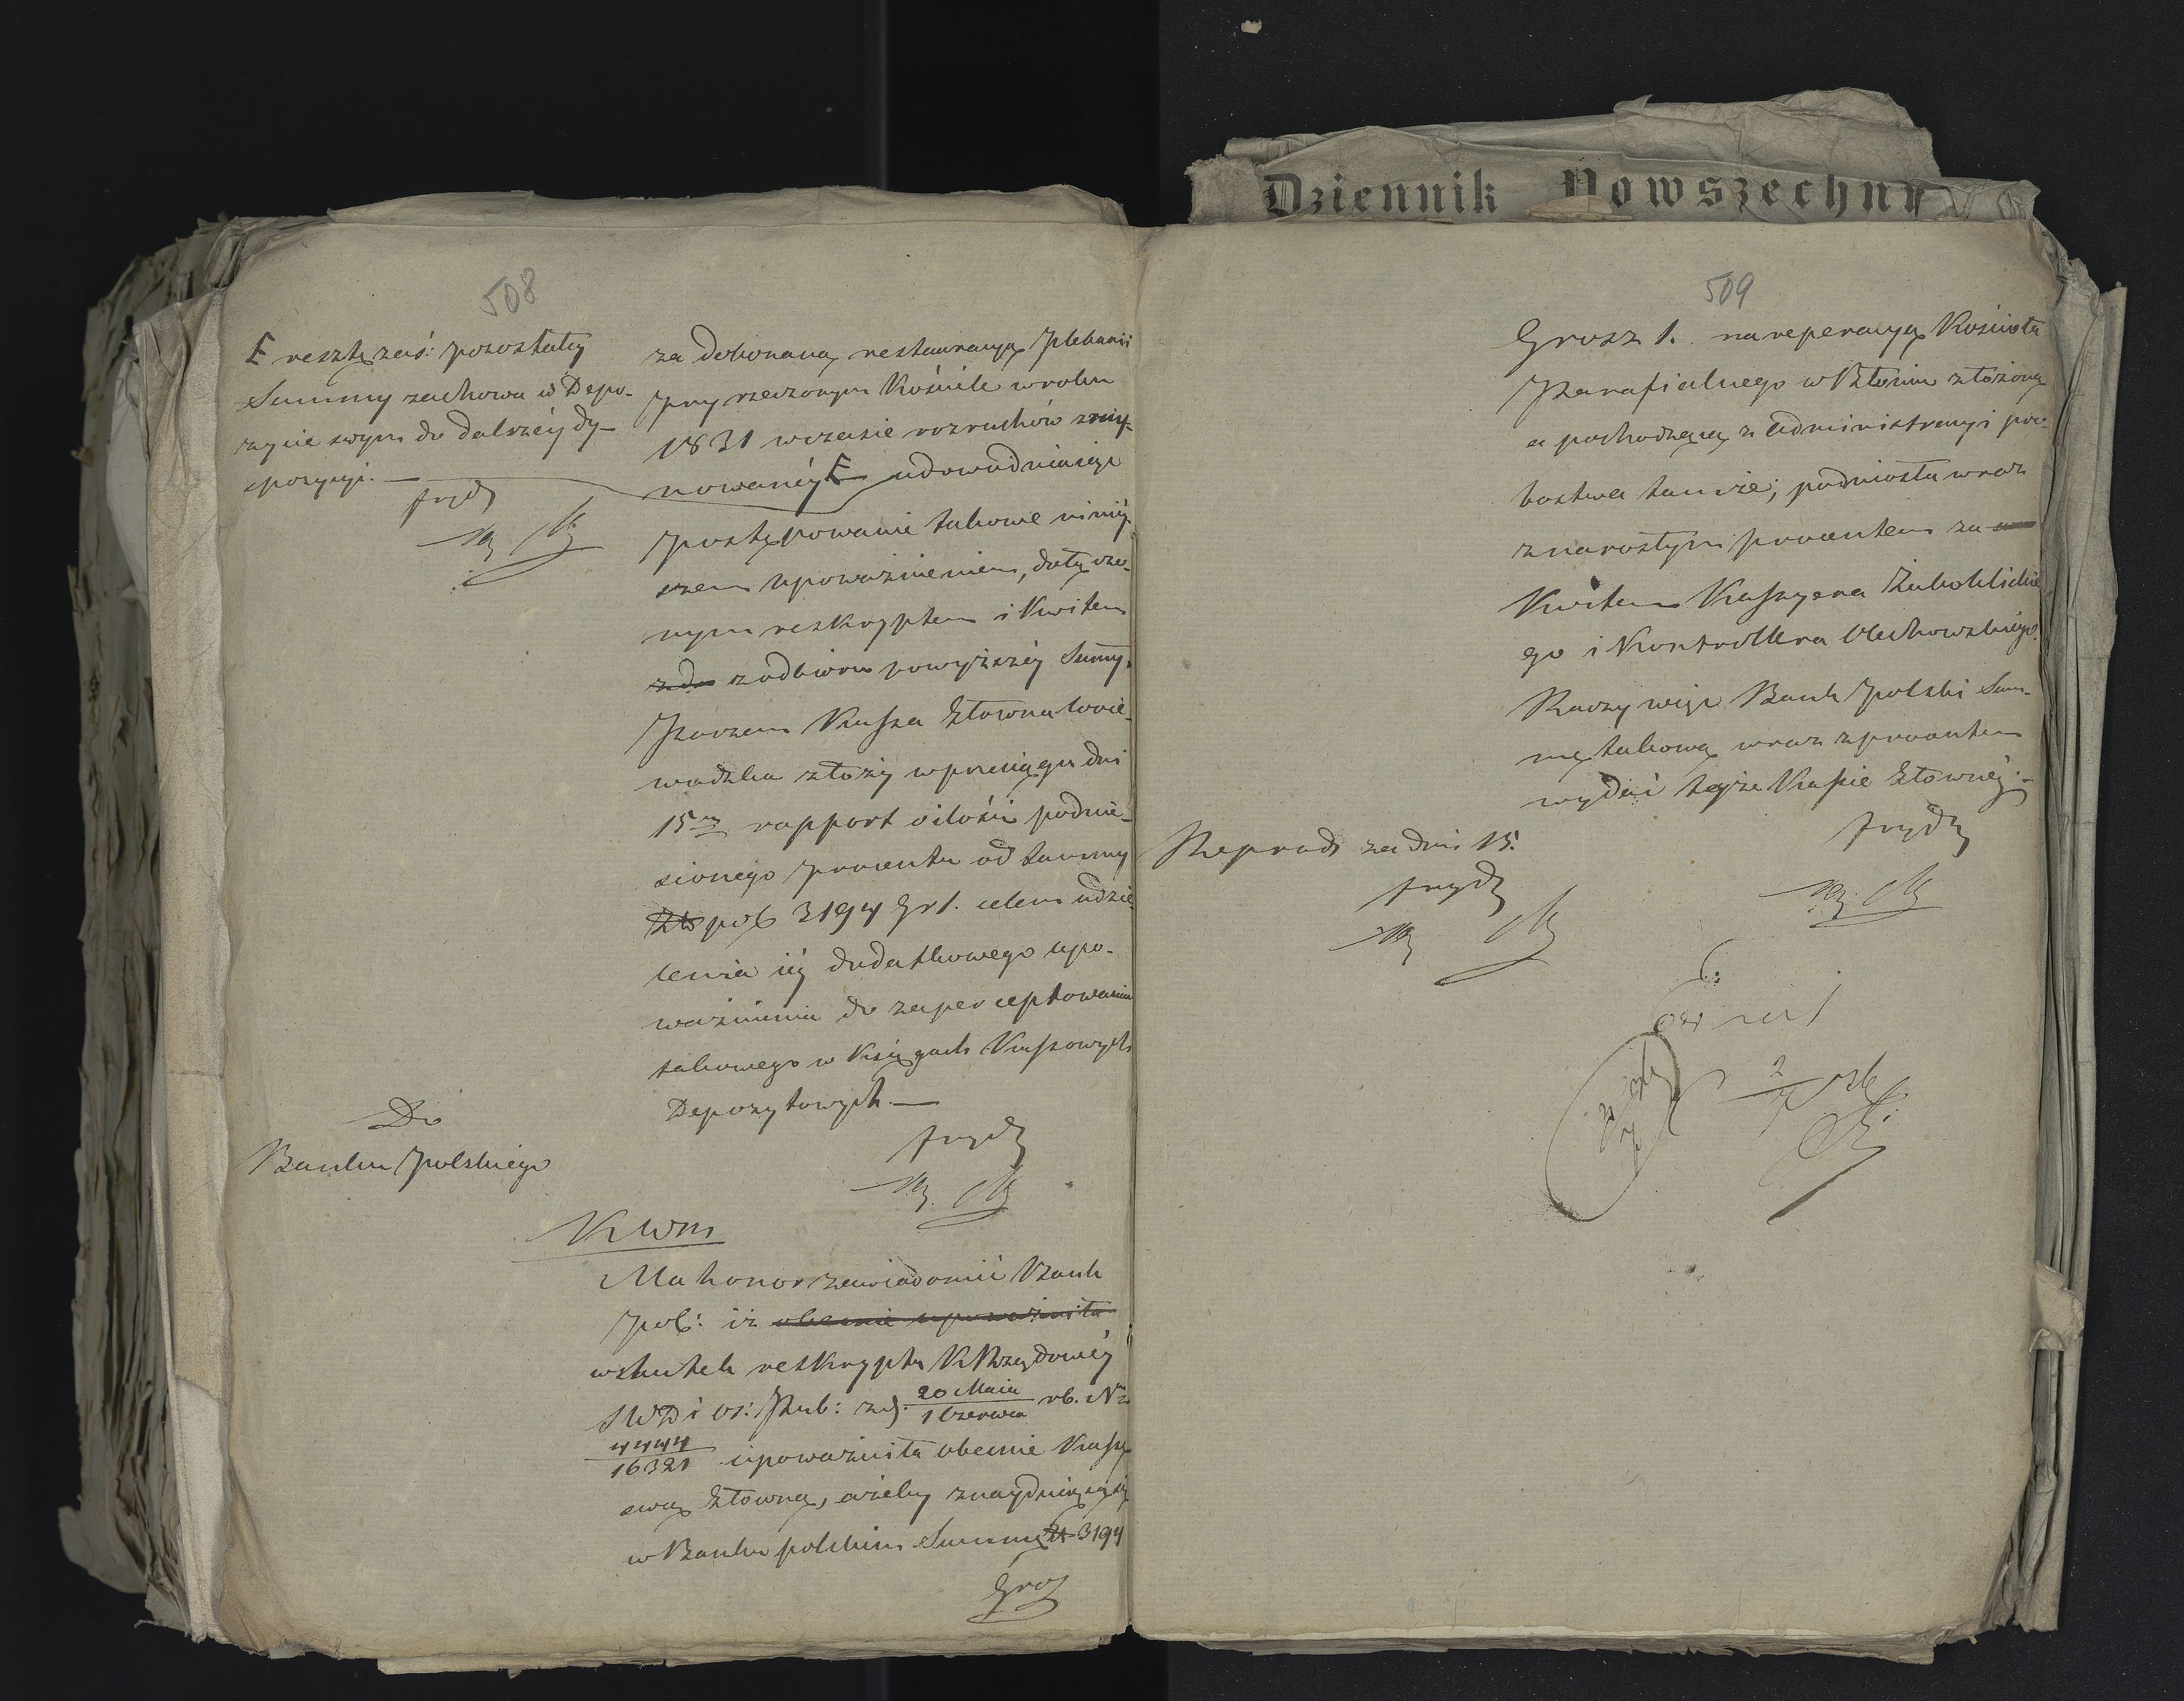 Dziennik Powszechny
508
F resztę zaś pozostałey
Summy zachowa w Depo-
zycie swym do dalszéy dy-
spozycyi. —
za dokonaną restauracyą Plebanii
przy rzeczonym Kościele w roku
1831 w czasie rozruchów zruy-
nowanéy F udowadniaiąc
postępowanie takowe niniéy-
szem upoważnieniem, dołączo-
nym reskryptem i Kwitem
z odbioru powyższéy Summy.
Poczem Kassa Główna Woie-
wódzka złoży w przeciągu dni
15 rapport o ilości podnie-
sionego procentu od Summy
Zło pol 3194 Gr 1. celem udzie-
lenia iéy dodatkowego upo-
ważnienia do zaperceptowania
takowego w Księgach Kassowych
Depozytowych. —
Do
Banku Polskiego
K W M
Ma honor zawiadomić Bank
Pol: iż obecnie upoważniła
wskutek reskryptu K Rządowéy
S W D i Oś: Pub: z d. 20 Maia / 1 Czerwca rb. No
4444 / 16321 upoważniła obecnie Kassę
swą Główną, ażeby znayduiącą się
w Banku polskim Summę Zł 3194
Grosz
509
Grosz 1. na reperacyą Kościoła
Parafialnego w Błoniu złożoną
a pochodzącą z Administracyi pro-
bostwa tamże, podniosła wraz
z narosłym procentem za
Kwitem Kassyera Zubohlickie
go i Kontrollera Olechowskiego.
Raczy więc Bank Polski Sum-
mę takową wraz z procentem
wydać teyże Kassie Głównéy. —
Reprod: za dni 15.